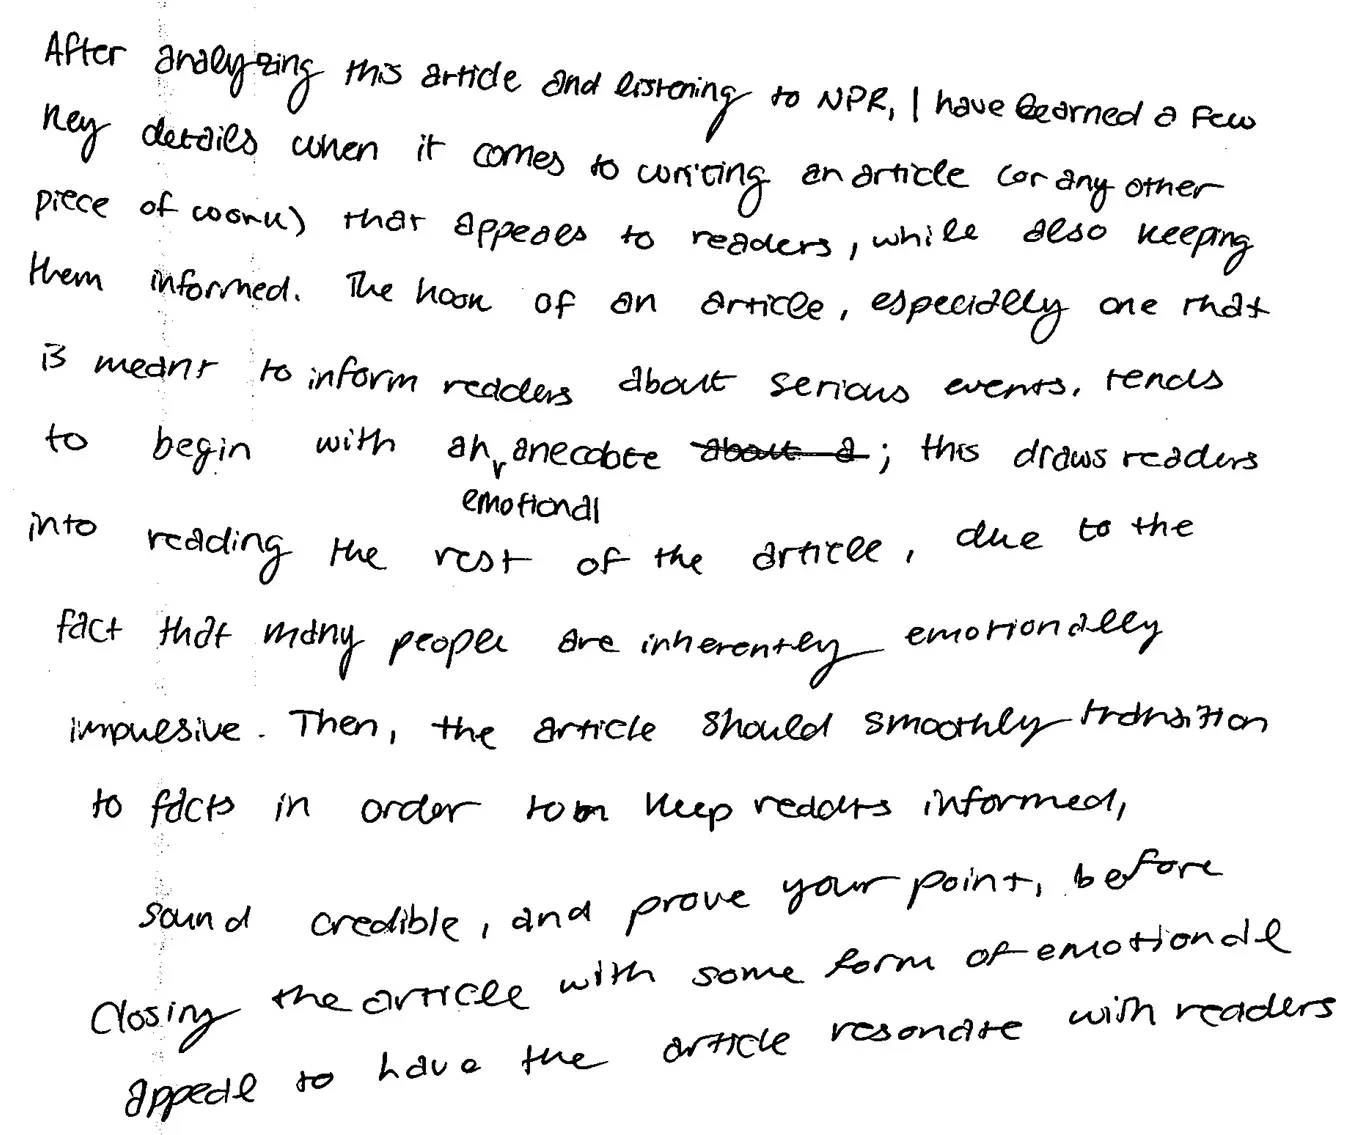 After analyzing this article and listening to NPR, I have learned a few
key details when it comes to writing an article (or any other
piece of work) that appeals to readers, while also keeping
them informed. The hook of an article, especially one that
is meant to inform readers about serious events, tends
to begin with an emotional anecdote about a; this draws readers
into reading the rest of the article, due to the
fact that many people are inherently emotionally
impulsive. Then, the article should smoothly transition
to facts in order to keep readers informed,
sound credible, and prove your point, before
closing the article with some form of emotional
appeal to have the article resonate with readers